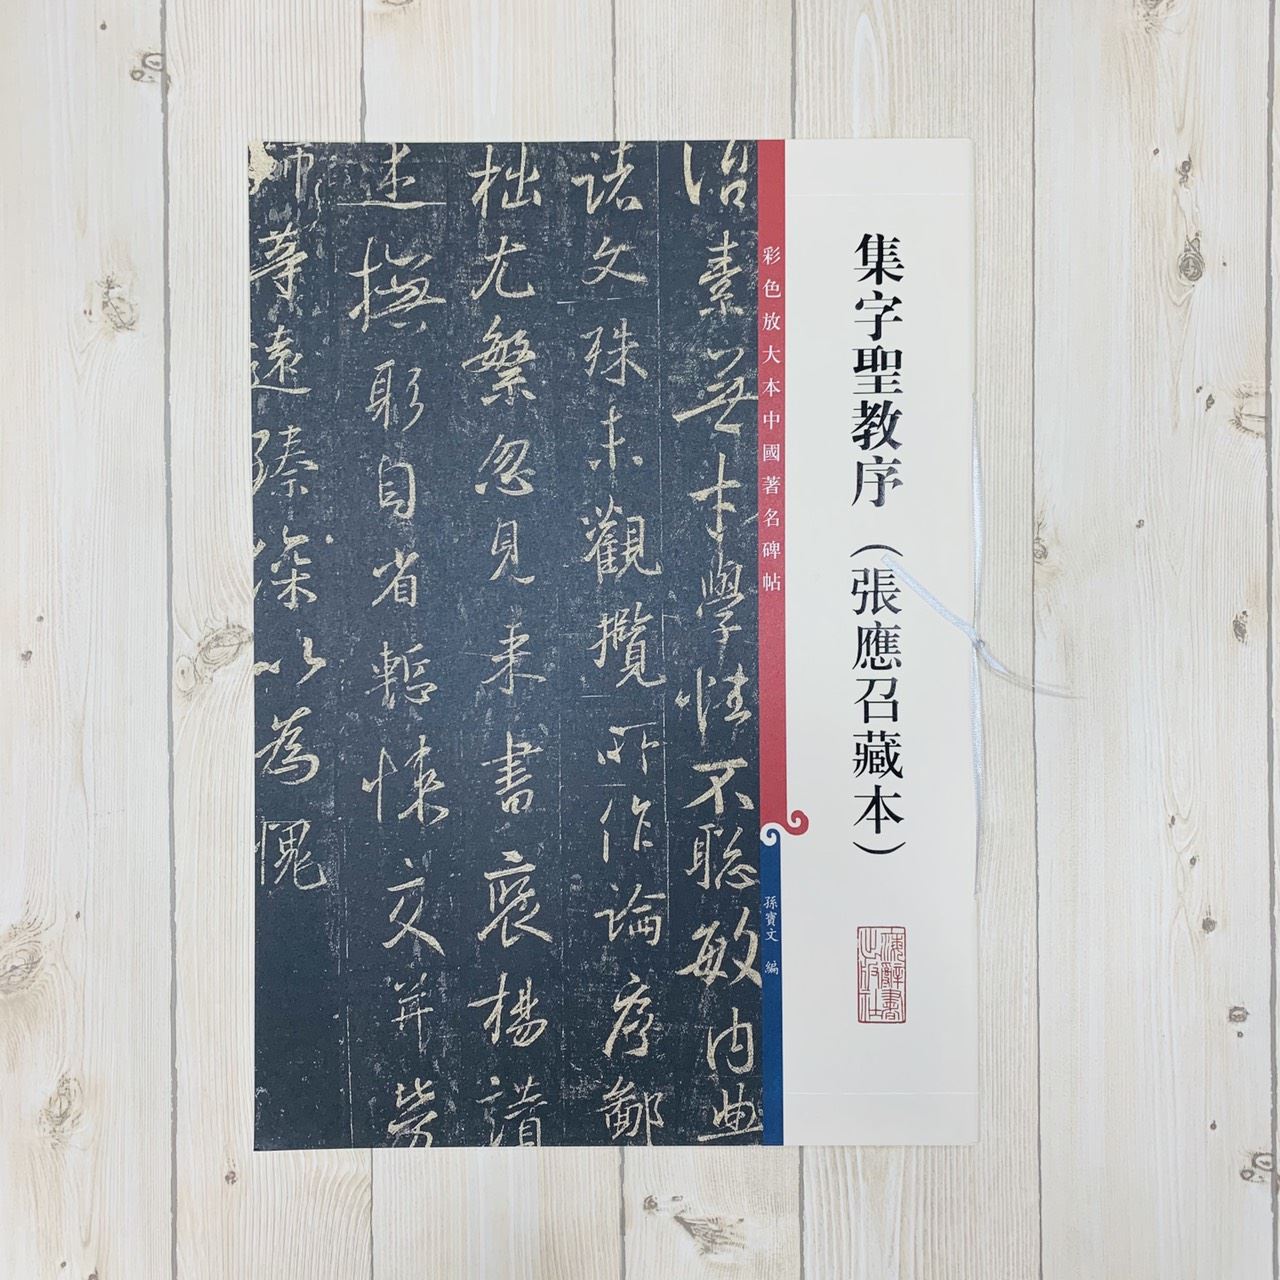 集字聖教序（張應召藏本）
上海辭書
出版社
彩色放大本中國著名碑帖
孫寶文 編
治素無才學性不聡敏内典
諸文殊未觀攬所作論序鄙
拙尤繁忽見来書褒揚讃
述撫躬自省慙悚交并勞
師等遠臻深以為愧